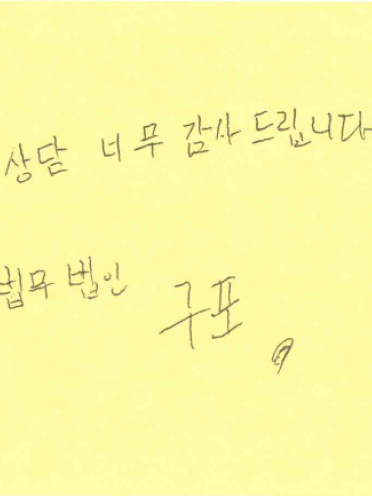 상담 너무 감사드립니다
법무법인 구포